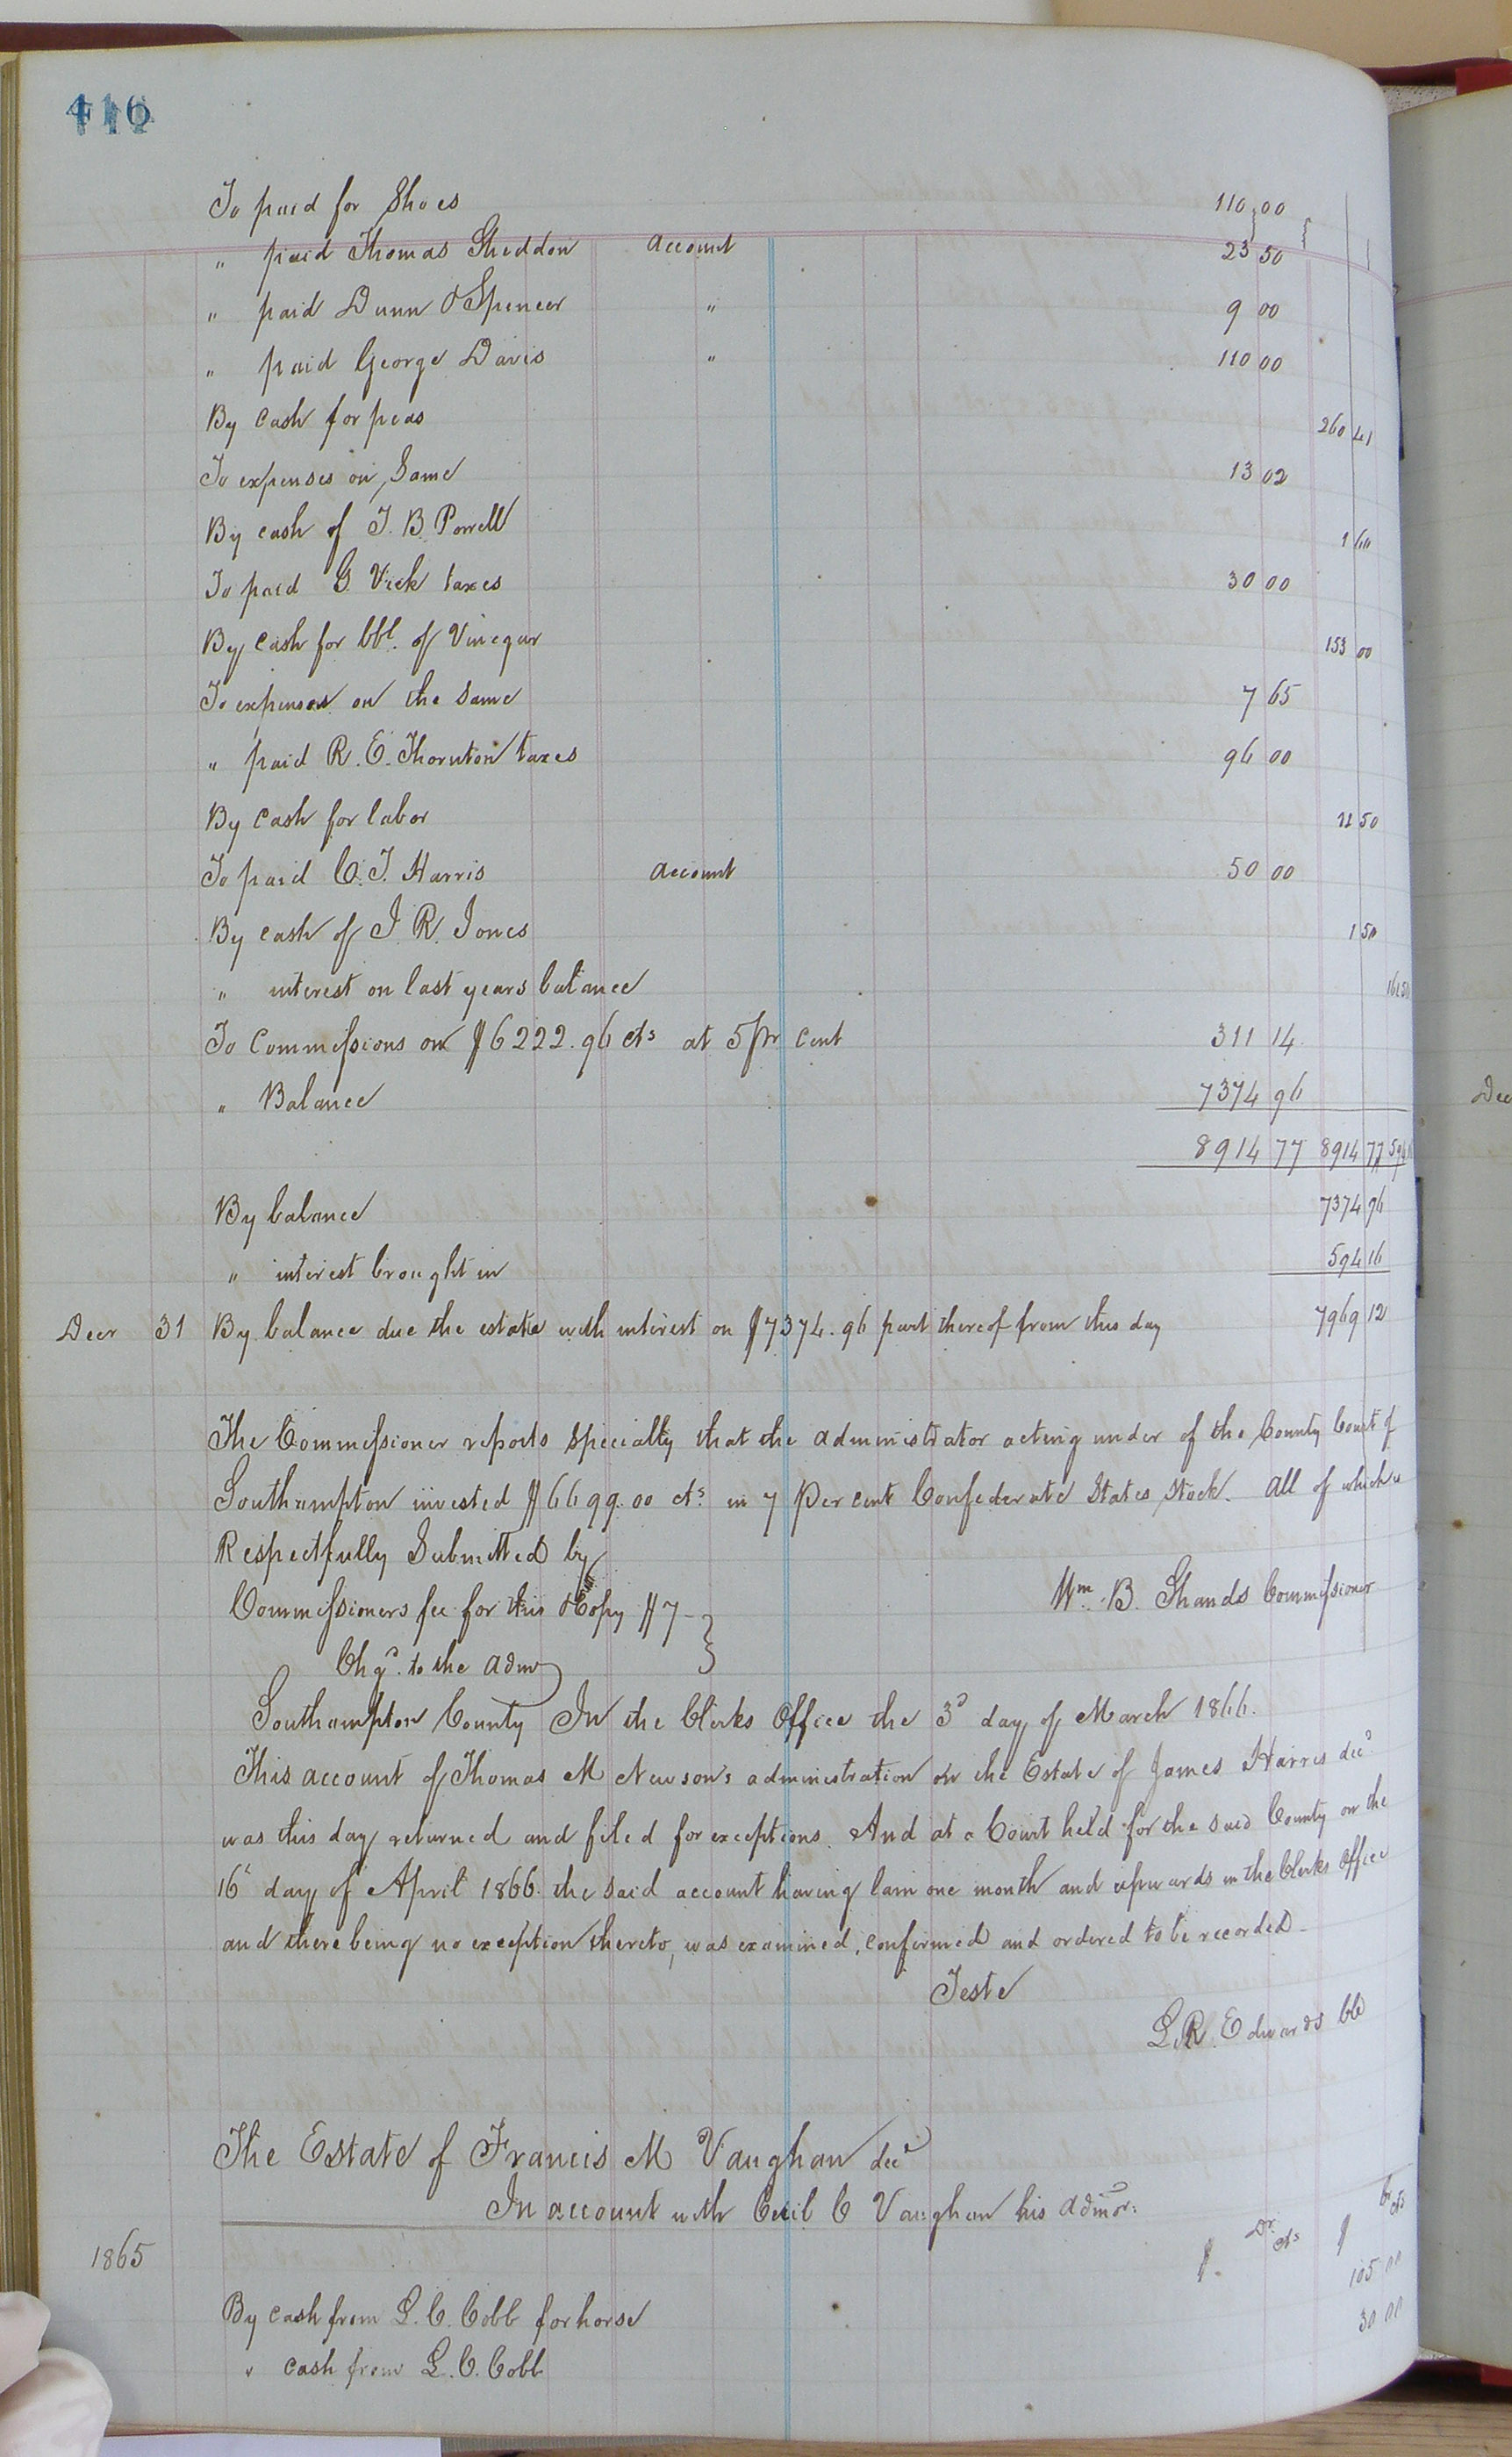 416
To paid for Shoes 110 00
" paid Thomas Sheddon account 23 50
" paid Dunn & Spencer " 9 00
" paid George Davis " 110 00
By Cash for peas 260 41
To expenses on Same 13 02
By cash of J. B. Powell 1
To paid G. Vick taxes 30 00
By Cash for bbl. of Vinegar 153 00
To expenses on the Same 7 65
" paid R. E. Thornton taxes 96 00
By Cash for labor 50
To paid C. T. Harris account 50 00
By cash of J. R. Jones 1 50
" interest on last years balance
To Commissions on $6222.96 cts at 5 pr cent 311 14
" Balance 7374 96
8914 77 8914 77
By balance 7374 96
" interest brought in 594 16
Decr 31 By balance due the estate with interest on $7374.96 part thereof from this day 7969 12
The Commissioner reports specially that the administrator acting under of the County Court of
Southampton invested $6699.00 cts. in 7 per cent Confederate States Stock. All of which is
Respectfully Submitted by
Wm. B. Shands Commissioner
Commissioners fee for this & Copy $7 -
Chgd. to the Admr
Southampton County In the Clerks Office the 3d day of March 1866.
This account of Thomas M Newsom's administration on the Estate of James Harris decd
was this day returned and filed for exceptions. And at a Court held for the said County on the
16th day of April 1866. the said account having lain one month and upwards in the Clerks Office
and there being no exception thereto, was examined, confirmed and ordered to be recorded -
Teste
L. R. Edwards CC
The Estate of Francis M Vaughan decd
In account with Cecil C Vaughan his Admor:
Dr. Cr
1865 $. cts $ cts
By Cash from L. C. Cobb for horse 105 00
" cash from L. C. Cobb 30 00
Dec